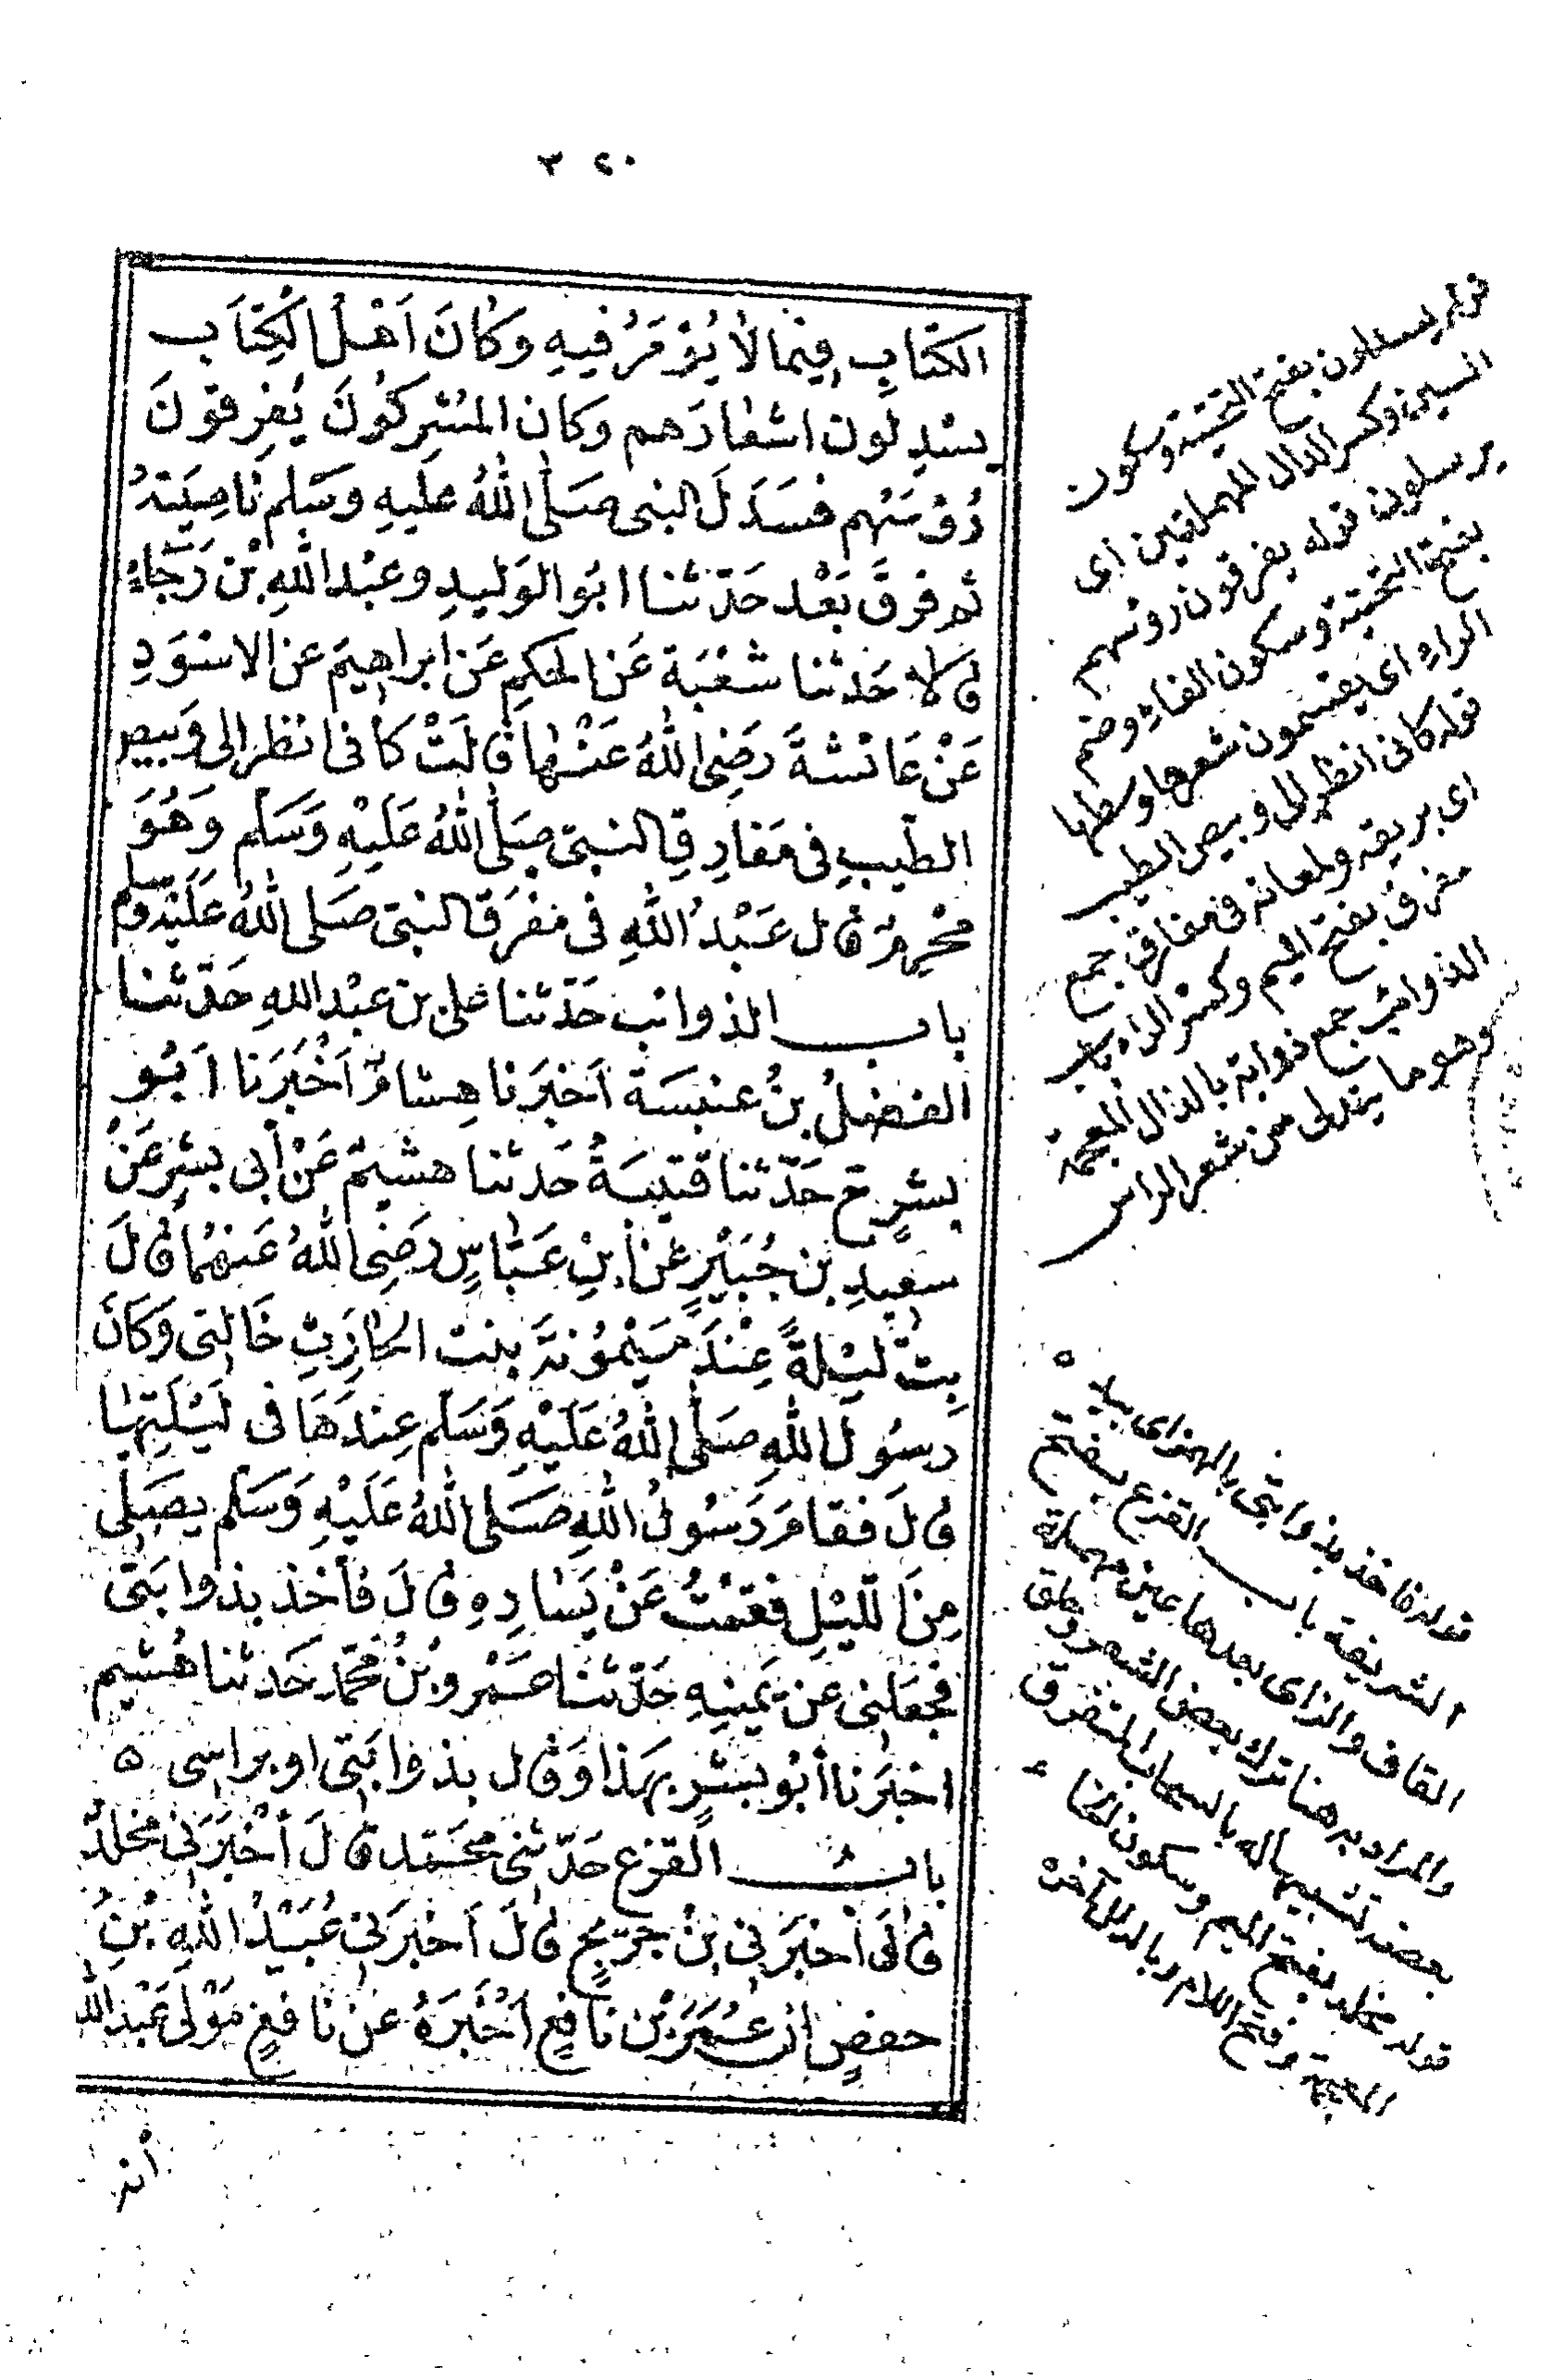 ٣٢٠
الكتاب فيما لا يُؤمَرُ فيه وكان اَهْلُ الكِتَاب
يسْدِلون اشعارَهم وكان المشركُونَ يُفرِقونَ
رُؤسَهُم فسَدَلَ النبى صَلَّى اللهُ عليهِ وسَلم ناصِيَتهُ
ثم فرقَ بَعْد حَدّثنا ابَو الوَليدِ وعبْد اللهِ بْن رَجَاءٍ
قالا حَدثنا شعْبَة عَن الحكمِ عَن ابراهيمَ عن الاسْوَدِ
عَنْ عَائشةَ رَضِىَ اللهُ عَنْها قالَتْ كَأنى انظر الى وَبِيصِ
الطّيبِ فى مَفارِقِ النبىّ صَلَّى اللهُ عَلَيْهِ وَسَلم وَهُوَ
مُحْرِمٌ قال عَبْدُ اللهِ فى مَفرَق النبىّ صَلى اللهُ عَلَيْه وسلم
باب الذوائب حَدّثنا على بن عبْد اللهِ حَدّثنا
الفضلُ بنُ عنبسَةَ اَخبَرَنا هِشامٌ اَخْبَرَنا اَبُو
بشرٍ ح حَدّثنا قتيبَةُ حَدثنا هشيمٌ عَنْ أبى بشرٍ عَنْ
سعيدِ بن جُبَيْرٍ عَن ابنِ عَبّاسٍ رَضِىَ اللهُ عَنهُمَا قال
بِتُّ ليْلةً عِنْدَ مَيْمُونَةَ بنت الحارِثِ خَالَتى وَكَانَ
رسُولُ اللهِ صَلَّى اللهُ عَلَيْهِ وَسَلم عِندَهَا فى لَيْلَتِها
قالَ فقامَ رَسُولُ اللهِ صَلَّى اللهُ عَلَيْهِ وَسَلم يصَلى
مِنَ اللّيْلِ فقمْتُ عَنْ يَسَارِهِ قالَ فأخذ بذوابَتى
فجعَلنى عن يَمينِهِ حَدّثنا عَمْرو بْنُ محَمّد حَدثنا هُشيم
اخبَرَنا أبُو بِشْرٍ بهَذا وَقال بذوابَتى او براسى ه
باب القزع حَدّثنى محَمّد قالَ أخْبَرَنى مخلدٌ
قالَ أخبَرَنى ابنُ جرَيجٍ قالَ أخبَرَنى عُبَيْدُ اللهِ بْنُ
حفصٍ ان عُمَرَ بْن نافِعٍ اَخْبَرَهُ عَن نافعٍ مَوْلى عَبْد الله
أنه
قوله يسدلون بفتح التحتية وسكون
السين وكسر الدال المهملتين اى
يرسلون قوله يفرقون رؤسهم
بفتح التحتية وسكون الفاء وضم
الراء اى يقسمون شعرها وسطها
قوله كانى انظر الى وبيص الطيب
اى بريقه ولمعانه فى مفارق جمع
مفرق بفتح الميم وكسر الراء باب
الذوائب جمع ذوابة بالذال المعجمة
وهو ما يتدلى من شعر الراس
قوله فاخذ بذوابتى بالهمز اى بيده
الشريفة باب القزع بفتح
القاف والزاى بعدها عين مهملة
والمراد به هنا ترك بعض الشعر وحلق
بعضه تشبيها له بالسحاب المتفرق
قوله مخلد بفتح الميم وسكون الخاء
المعجمة وفتح اللام وبالدال آخره